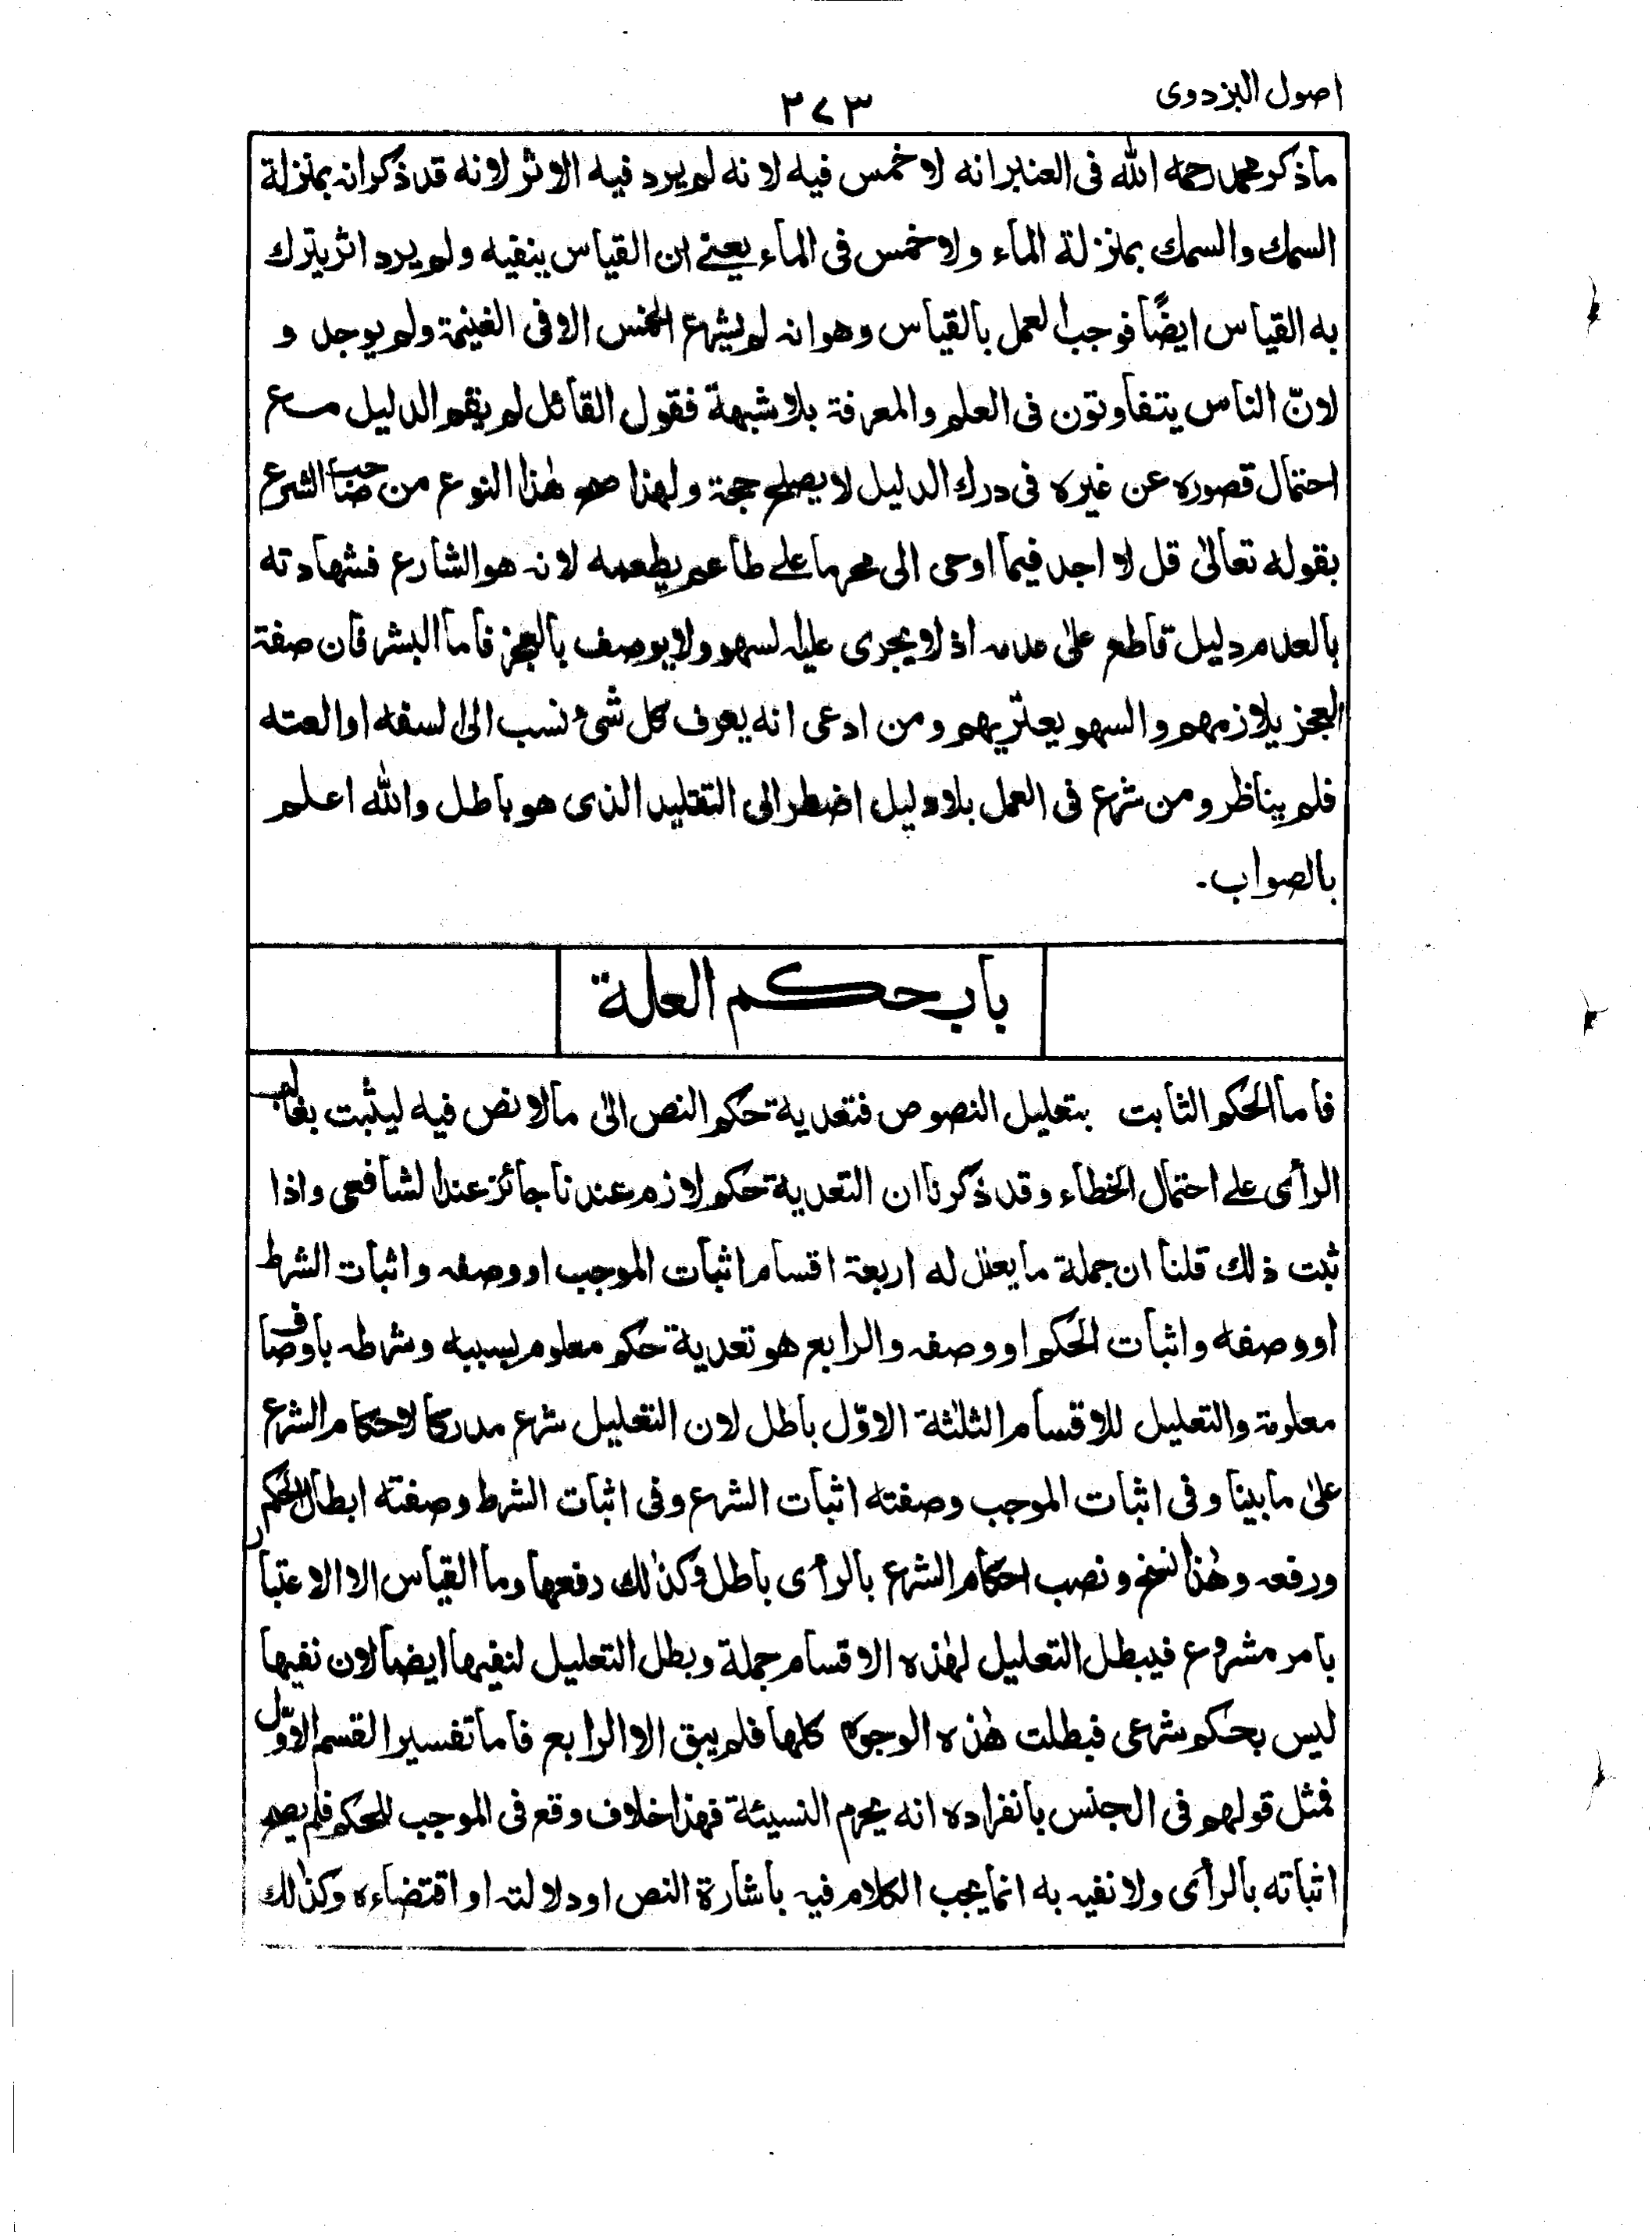 اصول البزدوى
٢٧٣
ماذكر محمد رحمه الله فى العنبر انه لا خمس فيه لانه لم يرد فيه الاثر لانه قد ذكر انه بمنزلة
السمك والسمك بمنزلة الماء ولا خمس فى الماء يعنے ان القياس ينفيه ولم يرد اثر يترك
به القياس ايضًا فوجب العمل بالقياس وهو انه لم يشرع الخمس الا فى الغنيمة ولم يوجد و
لانّ الناس يتفاوتون فى العلم والمعرفة بلا شبهة فقول القائل لم يقم الدليل مع
احتمال قصوره عن غيره فى درك الدليل لا يصلح حجة ولهذا صح هٰذا النوع من صاحب الشرع
بقوله تعالىٰ قل لا اجد فيما اوحى الى محرما علے طاعم يطعمه لانه هو الشارع فشهادته
بالعدم دليل قاطع علىٰ عدمه اذ لا يجرى عليه السهو ولا يوصف بالعجز فاما البشر فان صفة
العجز يلازمهم والسهو يعتريهم ومن ادعى انه يعرف كل شئ نسب الى السفه او العته
فلم يناظر ومن شرع فى العمل بلا دليل اضطر الى التقليد الذى هو باطل والله اعلم
بالصواب۔
باب حكم العلة
فاما الحكم الثابت بتعليل النصوص فتعدية حكم النص الىٰ مالا نص فيه ليثبت بغالب
الرأى علے احتمال الخطاء وقد ذكرنا ان التعدية حكم لازم عندنا جائز عند الشافعى واذا
ثبت ذلك قلنا ان جملة ما يعلل له اربعة اقسام اثبات الموجب او وصفه واثبات الشرط
او وصفه واثبات الحكم او وصفه والرابع هو تعدية حكم معلوم بسببه وشرطه باوصاف
معلومة والتعليل للاقسام الثلثة الاوّل باطل لان التعليل شرع مدركا لاحكام الشرع
علىٰ ما بينا وفى اثبات الموجب وصفته اثبات الشرع وفى اثبات الشرط وصفته ابطال الحكم
ورفعه وهٰذا نسخ ونصب احكام الشرع بالرأى باطل وكذٰلك رفعها وما القياس الا الاعتبار
بامر مشروع فيبطل التعليل لهٰذه الاقسام جملة وبطل التعليل لنفيها ايضا لان نفيها
ليس بحكم شرعى فبطلت هٰذه الوجوه كلها فلم يبق الا الرابع فاما تفسير القسم الاوّل
فمثل قولهم فى الجنس بانفراده انه يحرم النسيئة فهذا خلاف وقع فى الموجب للحكم فلم يصح
اثباته بالرأى ولا نفيه به انما يجب الكلام فيه باشارة النص او دلالته او اقتضاءه وكذٰلك